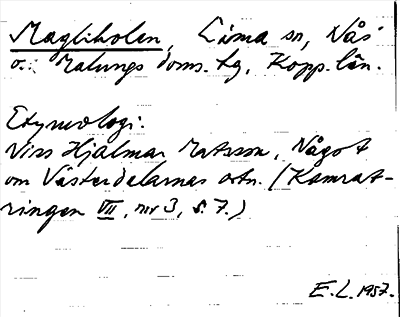 Magliholen, Lima sn, Nås
o. Malungs doms. hg, Kopp. län.
Etymologi:
Viss Hjalmar Matsson, Något
om Västerdalarnas ortn. (Kamrat-
ringen VII, nr 3, s. 7.)
E. L. 1957.